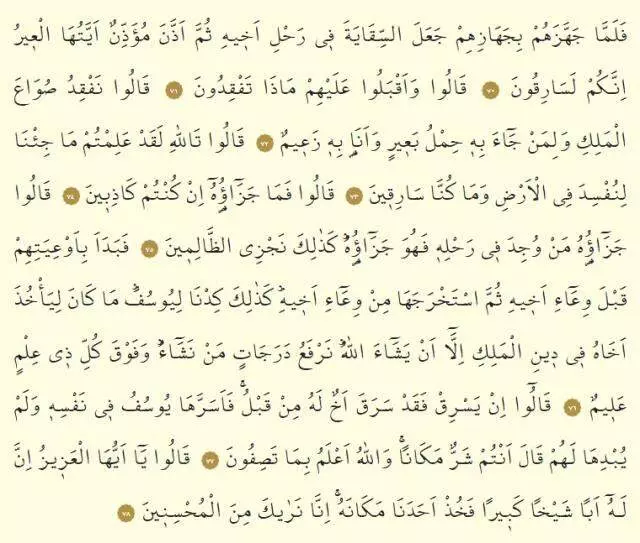 فَلَمَّا جَهَّزَهُمْ بِجَهَازِهِمْ جَعَلَ السِّقَايَةَ ف۪ي رَحْلِ اَخ۪يهِ ثُمَّ اَذَّنَ مُؤَذِّنٌ اَيَّتُهَا الْع۪يرُ
اِنَّكُمْ لَسَارِقُونَ ﴿٧٠﴾ قَالُوا وَاَقْبَلُوا عَلَيْهِمْ مَاذَا تَفْقِدُونَ ﴿٧١﴾ قَالُوا نَفْقِدُ صُوَاعَ
الْمَلِكِ وَلِمَنْ جَٓاءَ بِه۪ حِمْلُ بَع۪يرٍ وَاَنَا۬ بِه۪ زَع۪يمٌ ﴿٧٢﴾ قَالُوا تَاللّٰهِ لَقَدْ عَلِمْتُمْ مَا جِئْنَا
لِنُفْسِدَ فِي الْاَرْضِ وَمَا كُنَّا سَارِق۪ينَ ﴿٧٣﴾ قَالُوا فَمَا جَزَٓاؤُ۬هُٓ اِنْ كُنْتُمْ كَاذِب۪ينَ ﴿٧٤﴾ قَالُوا
جَزَٓاؤُ۬هُ مَنْ وُجِدَ ف۪ي رَحْلِه۪ فَهُوَ جَزَٓاؤُ۬هُۜ كَذٰلِكَ نَجْزِي الظَّالِم۪ينَ ﴿٧٥﴾ فَبَدَاَ بِاَوْعِيَتِهِمْ
قَبْلَ وِعَٓاءِ اَخ۪يهِ ثُمَّ اسْتَخْرَجَهَا مِنْ وِعَٓاءِ اَخ۪يهِۜ كَذٰلِكَ كِدْنَا لِيُوسُفَۜ مَا كَانَ لِيَأْخُذَ
اَخَاهُ ف۪ي د۪ينِ الْمَلِكِ اِلَّٓا اَنْ يَشَٓاءَ اللّٰهُۜ نَرْفَعُ دَرَجَاتٍ مَنْ نَشَٓاءُۜ وَفَوْقَ كُلِّ ذ۪ي عِلْمٍ
عَل۪يمٌ ﴿٧٦﴾ قَالُٓوا اِنْ يَسْرِقْ فَقَدْ سَرَقَ اَخٌ لَهُ مِنْ قَبْلُۚ فَاَسَرَّهَا يُوسُفُ ف۪ي نَفْسِه۪ وَلَمْ
يُبْدِهَا لَهُمْۚ قَالَ اَنْتُمْ شَرٌّ مَكَانًاۚ وَاللّٰهُ اَعْلَمُ بِمَا تَصِفُونَ ﴿٧٧﴾ قَالُوا يَٓا اَيُّهَا الْعَز۪يزُ اِنَّ
لَهُٓ اَبًا شَيْخًا كَب۪يرًا فَخُذْ اَحَدَنَا مَكَانَهُۚ اِنَّا نَرٰيكَ مِنَ الْمُحْسِن۪ينَ ﴿٧٨﴾